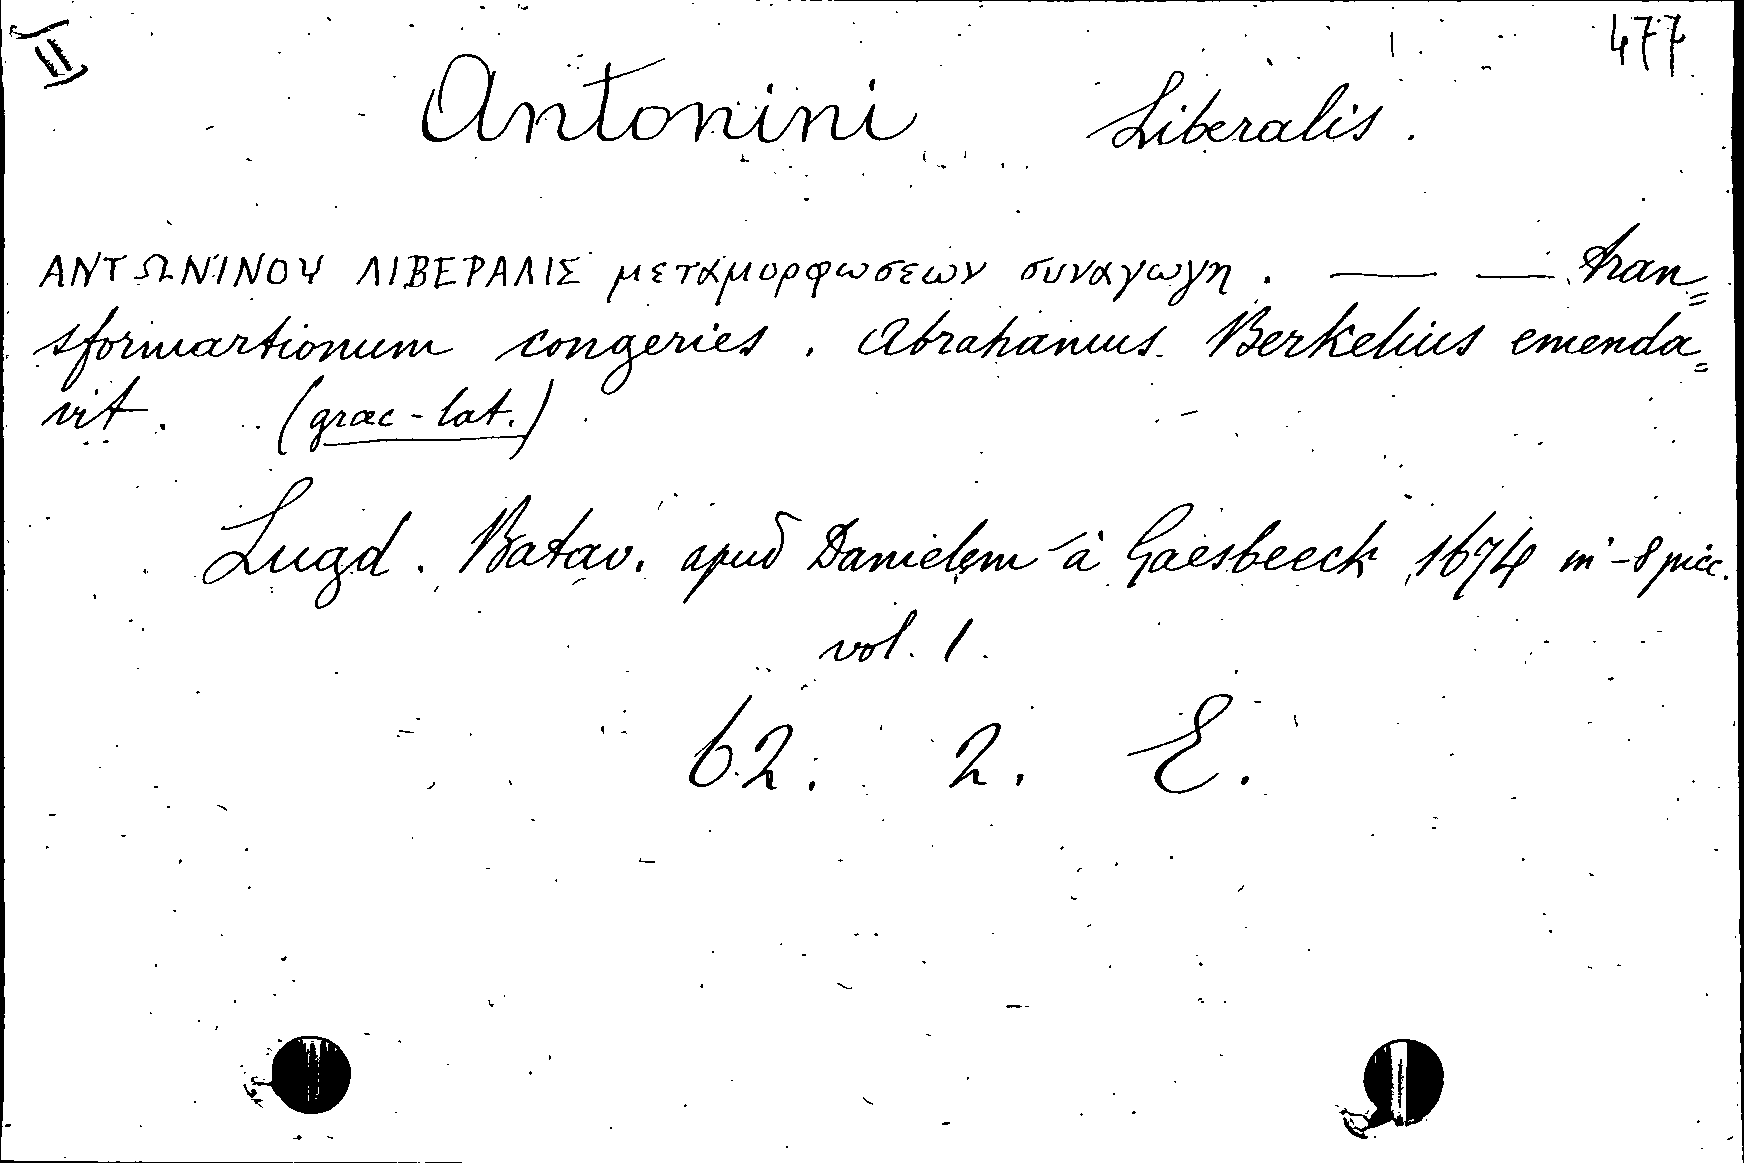 II
477
Antonini Liberalis.
ΑΝΤΩΝΙΝΟΥ ΛΙΒΕΡΑΛΙΣ μεταμορφωσεων συναγωγη. — — tran=
sformartionum congeries. Abrahamus Berkelius emenda=
vit. (grac-lat.)
Lugd. Batav. apud Danielem à Gaesbeeck 1674 in-8 picc.
vol. 1.
62. 2. E.